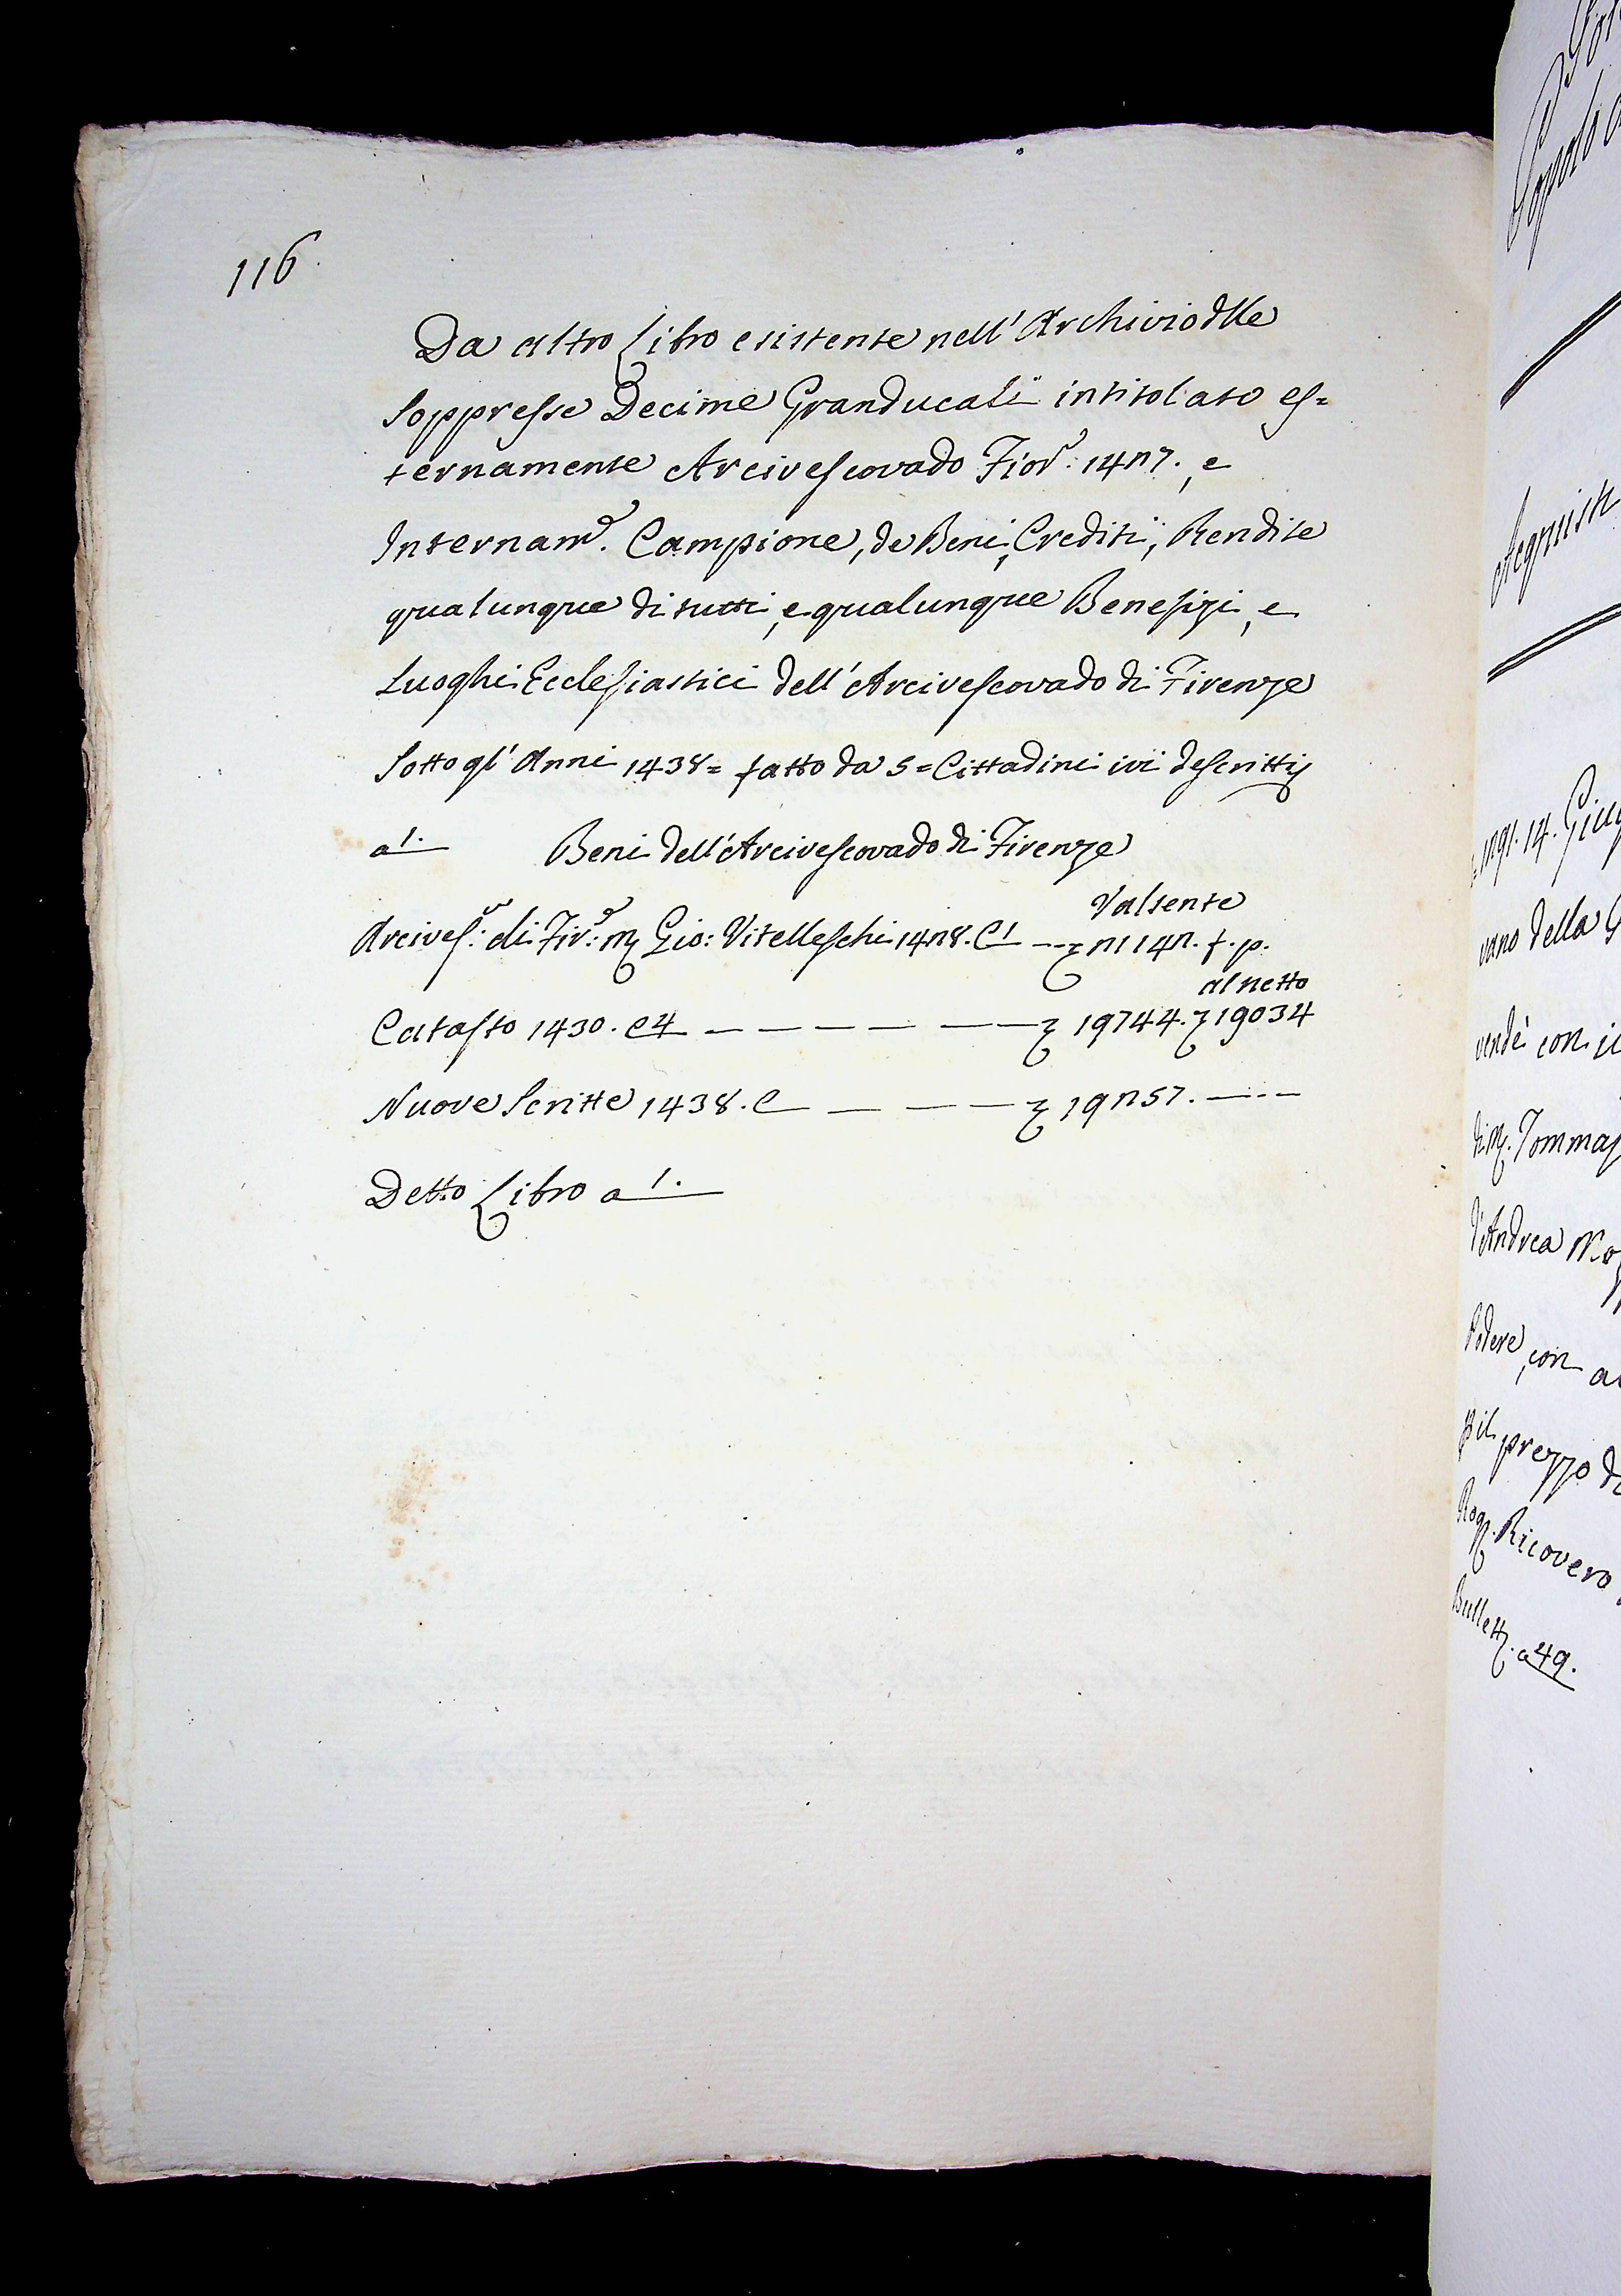 116.
Da altro Libro esistente nell' Archivio dlle
Soppresse Decime Granducali intitolato es=
ternamente Arcivescovado Fior.e 1427., e
Internam.e Campione, de Beni, Crediti, Rendite
qualunque di tutti, e qualunque Benefizi, e
Luoghi Ecclesiastici dell' Arcivescovado di Firenze
Sotto gl' Anni 1438= fatto da 5= Cittadini ivi descritti
a 1. Beni dell' Arcivescovado di Firenze
Valsente
Arcives.o di Fir.e M Gio: Vitelleschi 1428. C 1 -- 21142. f. p.
al netto
Catasto 1430. C 4 — — — — — 19744. 19034
Nuove Scritte 1438. C — — — 19257. —.—
Detto Libro a 1.
Popolo
Acquisti
1291. 14.
vano della
vendè con
di M. Tommas
d'Andrea
Podere, con
p il prezzo
Rog. Ricovero
Bullett. a 49.